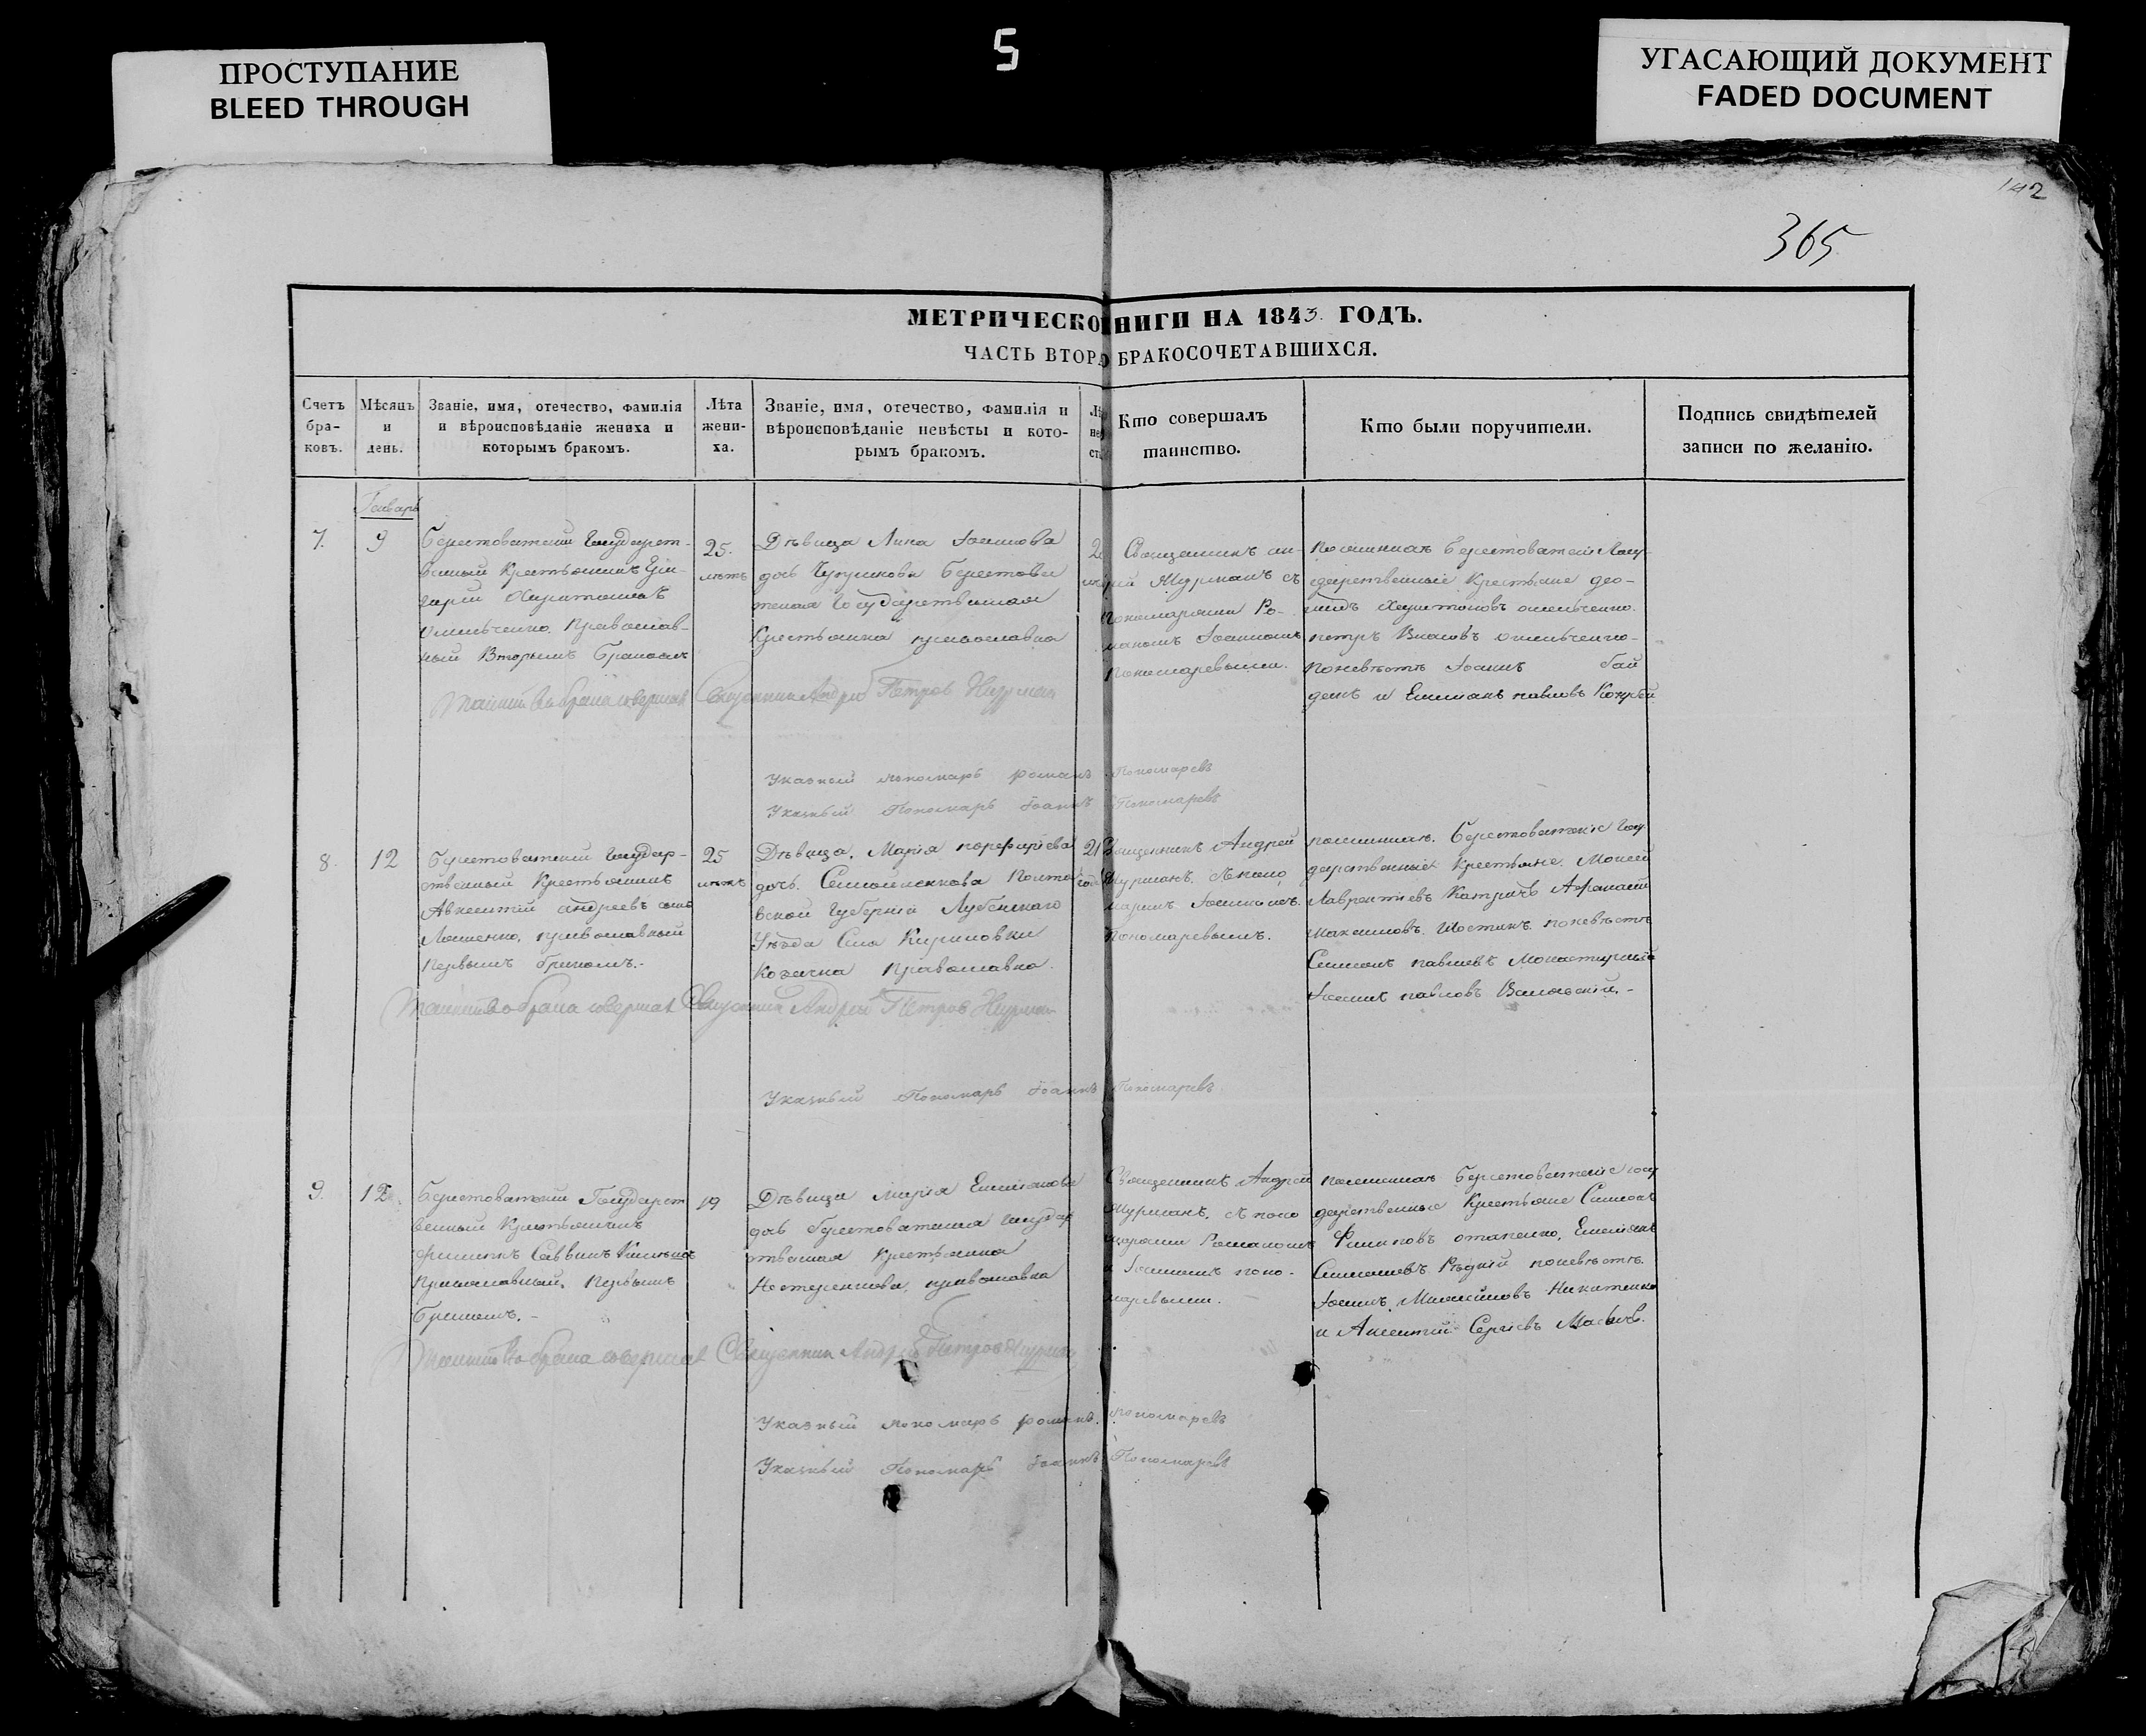 ПРОСТУПАНИЕ
BLEED THROUGH
5
УГАСАЮЩИЙ ДОКУМЕНТ
FADED DOCUMENT
142
365
МЕТРИЧЕСКО НИГИ НА 1843. ГОДЪ.
ЧАСТЬ ВТОРА БРАКОСОЧЕТАВШИХСЯ.
Счетъ
бра-
ковъ.
Мѣсяцъ
и
день.
Званіе, имя, отечество, фамилія
и вѣроисповѣданіе жениха и
которымъ бракомъ.
Лѣта
жени-
ха.
Званіе, имя, отечество, фамилія и
вѣроисповѣданіе невѣсты и кото-
рымъ бракомъ.
Лѣ
не
ст
Кто совершалъ
таинство.
Кто были поручители.
Подпись свидѣтелей
записи по желанію.
Генварь
7.
9
Берестоватскій Государст-
венный Крестьянинъ
Харитоновъ
Омельченко. православ-
ный Вторымъ бракомъ
25.
лѣтъ
Дѣвица Анна Іоаннова
дочь Берестова
тская Государственная
Крестьянка православна
Священникъ ан-
Журманъ съ
пономарями Ро-
маномъ Іоанномъ
Пономаревыми.
По женихѣ Берестоватскія Госу-
дарственные Крестьяне
Харитоновъ омельченко.
петръ Власовъ омельченко-
по невѣстѣ Іоаннъ бай
и Емиліанъ павловъ
Таинство брака совершал Священник Андрей Петров Журман
Указный пономарь романъ Пономаревъ
Указный Пономарь Іоаннъ Пономаревъ
8.
12
Берестоватскій Государ-
ственный Крестьянинъ
Авксентій андреевъ сынъ
православный
Первымъ бракомъ.-
25
лѣтъ
Дѣвица, Марія порфиріева
дочь. Полта
вской Губерніи Лубенскаго
Уѣзда Села Кириловки
Козачка Православна.
21
год
Священникъ Андрей
Журманъ. съ поно
маремъ Іоанномъ.
Пономаревымъ.
по женихѣ. Берестоватскіе Госу-
дарственные Крестьяне. Моисей
Лаврентіевъ Катричъ Афанасій
Максимовъ. Шостакъ. по невѣстѣ
Симеонъ павловъ Монастырный
Іоаннъ павловъ
Таинство брака совершал Священник Андрей Петров Журман
Указный Пономарь Іоаннъ Пономаревъ
9.
12
Берестоватскій Государст
венный Крестьянинъ
Филиппъ Саввинъ
Православный. Первымъ
бракомъ.-
19
Дѣвица Марія Емиліанова
дочь берестоватская Государ
ственная Крестьянка
Нестеренкова, православна
Священникъ Андрей
Журманъ, съ поно
марями Романомъ
и Іоанномъ поно-
маревыми.
по женихѣ Берестоватскіе госу
дарственные Крестьяне Симеонъ
Филиповъ Емиліанъ
Симеоновъ Рѣдкій по невѣстѣ.
Іоаннъ Никитенко
и Авксентій Сергіевъ
Таинство брака совершал Священник Андрей Петров Журман
Указный пономарь романъ. Пономаревъ
Указный Пономарь Іоаннъ Пономаревъ